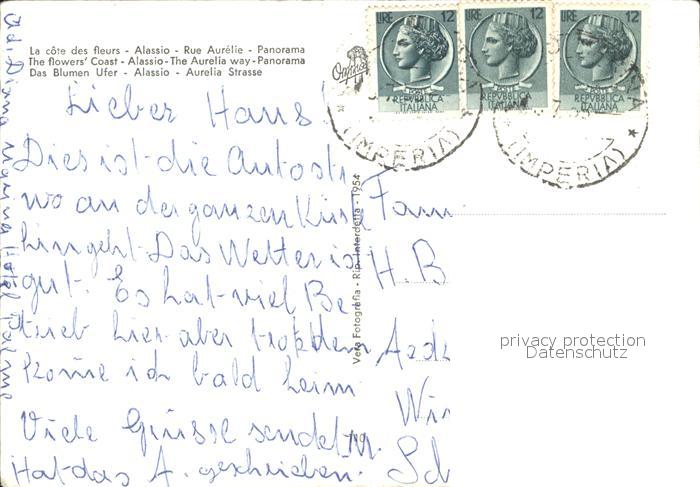 LIRE 12 LIRE 12 LIRE 12
REPVBBLICA ITALIANA REPVBBLICA ITALIANA REPVBBLICA ITALIANA
(IMPERIA) (IMPERIA) *
La côte des fleurs - Alassio - Rue Aurélie - Panorama
The flowers' Coast - Alassio - The Aurelia way - Panorama
Das Blumen Ufer - Alassio - Aurelia Strasse
Lieber Hans!
Dies ist die Autostr
wo an der ganzen Küste
hingeht. Das Wetter ist
gut. Es hat viel Be
trieb hier aber trotzdem
komme ich bald heim
Viele Grüsse sendet M.
Hat das A. geschrieben.
Vera Fotografia - Rip. Interdetta - 1954
Fam
H. B
Wi
Sch
privacy protection
Datenschutz